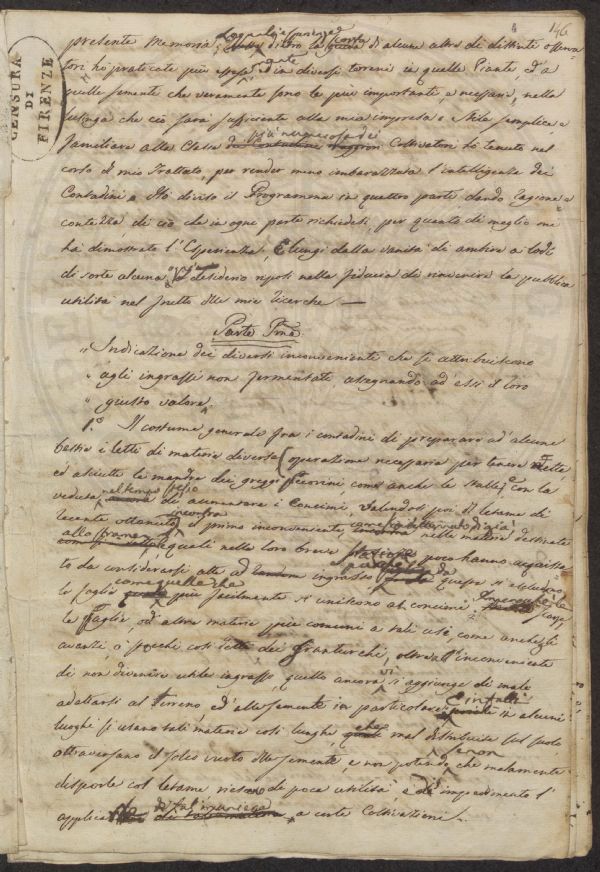 146
CENSURA
DI
FIRENZE
presente Memoria, dietro la di alcune altre di distinte osserva-
tori ho praticate più espe in diversi terreni in quelle Piante, da
quelle semente che veramente sono le più importanti, e necessarie, nella
lusinga che ciò sarà sufficiente alla mia impresa. Stile semplice, e
familiare alla Classe più numerosa dei Coltivatori ho tenuto nel
corso il mio Trattato, per render meno imbarazzata l'intelligenza dei
Contadini. Ho diviso il Programma in quattro parti dando ragione e
contezza di ciò che in ogni parte richiedesi, per quanto di meglio me
ha dimostrato l'Esperienza, e lungi dalla vanità di ambire a lodi
di sorte alcuna, desiderio riposi nella fiducia di rinvenire la pubblica
utilità nel frutto delle mie ricerche —
Parte Pma
„ Indicazione dei diversi inconvenienti che si attribuiscono
„ agli ingrassi non fermentati assegnando ad essi il loro
„ giusto valore.
1.° Il costume generale fra i contadini di preparare ad alcune
bestie i letti di materie diverse (operazione necessaria per tenere
ed asciutte le mandre dei greggi Pecorini, come anche le stalle, con la
veduta nel tempo stesso di aumentare i Concimi. Valendosi poi di letame di
recente ottenuto, incontra il primo inconveniente, nelle materie destinate
allo strame quali nella loro breve stazione poco hanno acquista-
to da considerarsi atte ad ingrasso, da queste si escludono
le foglie come quelle che più facilmente si uniscono al concime.
le Paglie, od altre materie più comuni a tali usi, come anche gli
avanzi, o stecchi così detti dei Granturchi, oltre l'inconveniente
di non divenire utile ingrasso, quello ancora vi si aggiunge di male
adattarsi al Terreno, ed alle semente in particolare. E infatti se in alcuni
luoghi si usano tali materie così lunghe che mal distribuite sul suolo
attraversano il solco vuoto alle semente, e non potendo, se non che malamente
disporle col letame riescono di poca utilità, e di impedimento l'
applica di tal maniera a certe Coltivazioni.